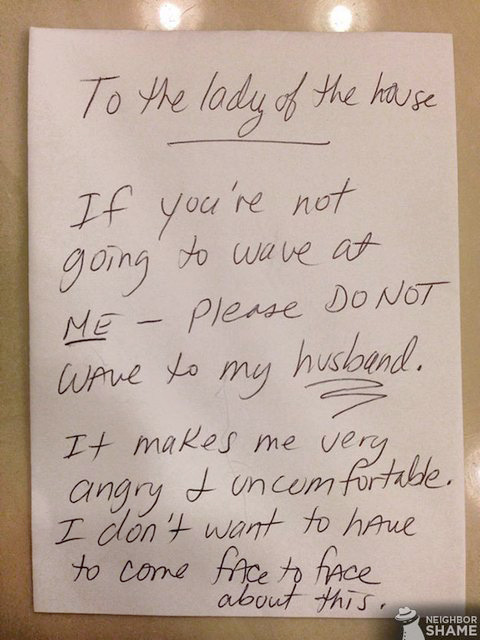 To the lady of the house
If you're not
going to wave at
ME - Please DO NOT
wave to my husband.
It makes me very
angry & uncomfortable.
I don't want to have
to come face to face
about this.
NEIGHBOR
SHAME